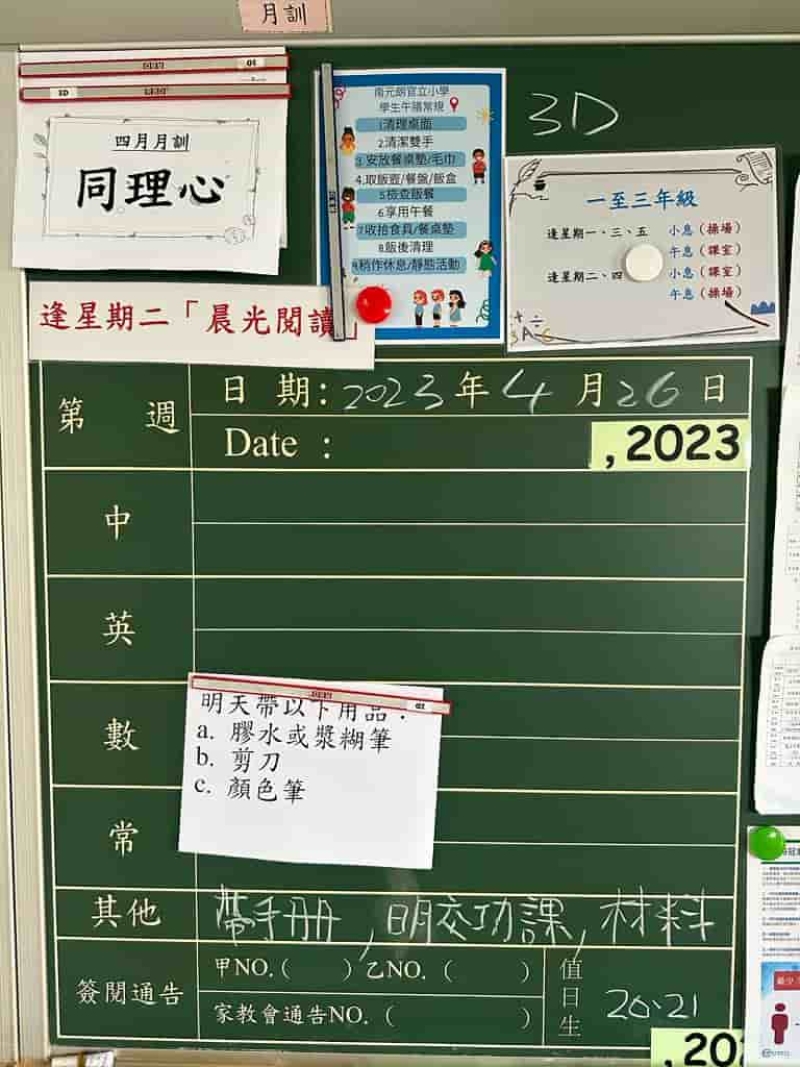 月訓
四月月訓
同理心
逢星期二「晨光閱讀」
南元朗官立小學
學生午膳常規
1清理桌面
2.清潔雙手
3.安放餐桌墊/毛巾
4.取飯壺/餐盤/飯盒
5檢查飯餐
6.享用午餐
7收拾食具/餐桌墊
8.飯後清理
9稍作休息/靜態活動
3D
一至三年級
逢星期一、三、五 小息（操場）
午息（課室）
逢星期二、四 小息（課室）
午息（操場）
第 週
日 期：2023年4月26日
Date :
,2023
中
英
數
明天帶以下用品：
a. 膠水或漿糊筆
b. 剪刀
c. 顏色筆
常
其他
帶手册,明交功課,材料
簽閱通告
甲NO.( )乙NO. ( )
家教會通告NO. ( )
值日生
20.21
,202